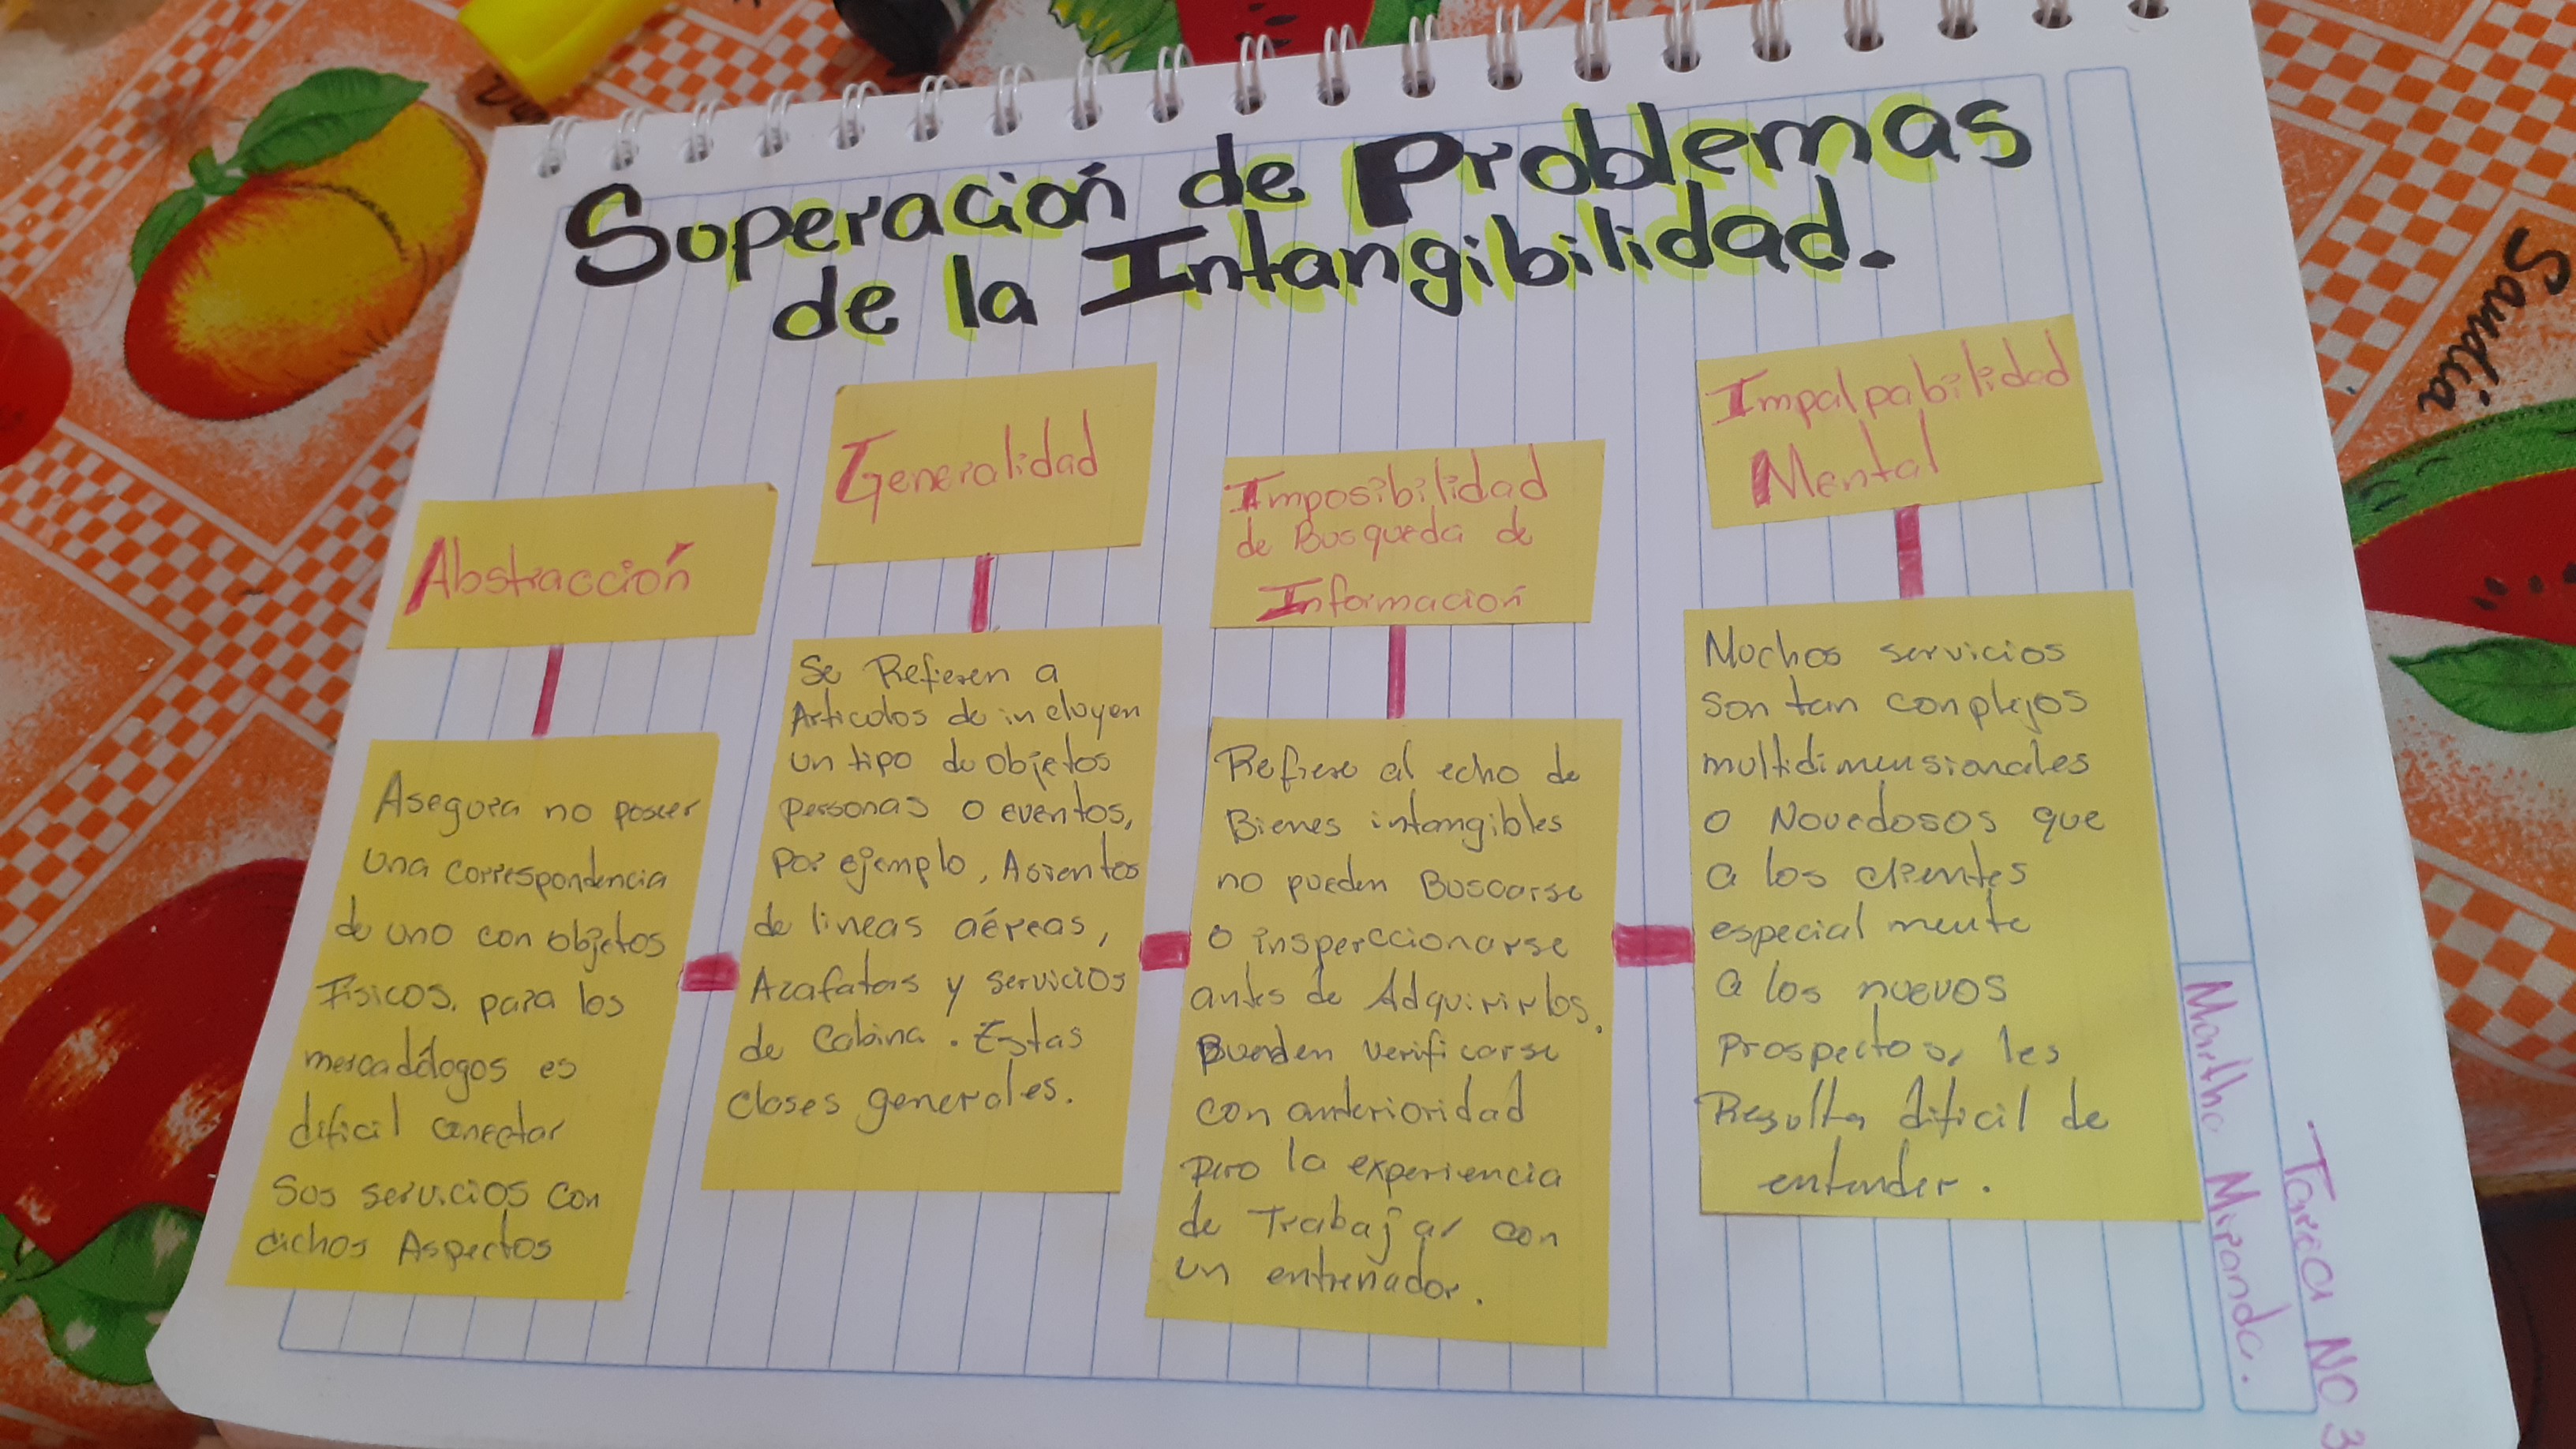 Superación de Problemas
de la Intangibilidad.
Abstracción
Asegura no poseer
una correspondencia
de uno con objetos
Físicos. para los
mercadólogos es
dificil conectar
Sus servicios con
dichos Aspectos
Generalidad
Se Refieren a
Articulos de incluyen
un tipo de objetos
personas o eventos,
por ejemplo, Asientos
de lineas aéreas,
Azafatas y servicios
de Cabina. Estas
clases generales.
Imposibilidad
de Busqueda de
Información
Refiere al echo de
Bienes intangibles
no pueden Buscarse
o insperccionarse
antes de Adquirirlos.
Pueden verificarse
con anterioridad
pero la experiencia
de Trabajar con
un entrenador.
Impalpabilidad
Mental
Muchos servicios
son tan conplejos
multidimensionales
o Novedosos que
a los clientes
especial mente
a los nuevos
prospectos, les
Resulta dificil de
entender.
Martha Miranda.
Tarea NO 3
Sandia